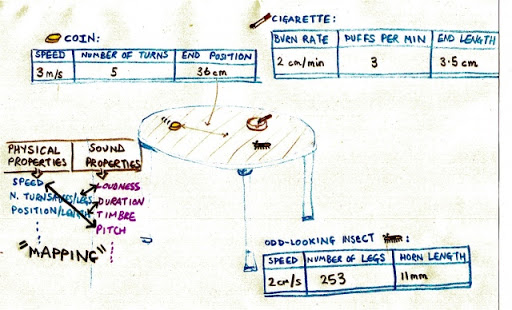 COIN:
SPEED NUMBER OF TURNS END POSITION
3 m/s 5 36 cm
CIGARETTE:
BURN RATE PUFFS PER MIN END LENGTH
2 cm/min 3 3.5 cm
PHYSICAL PROPERTIES
SOUND PROPERTIES
SPEED
N. TURNS/LEGS
POSITION/LENGTH
LOUDNESS
DURATION
TIMBRE
PITCH
"MAPPING"
ODD-LOOKING INSECT :
SPEED NUMBER OF LEGS HORN LENGTH
2 cm/s 253 11mm